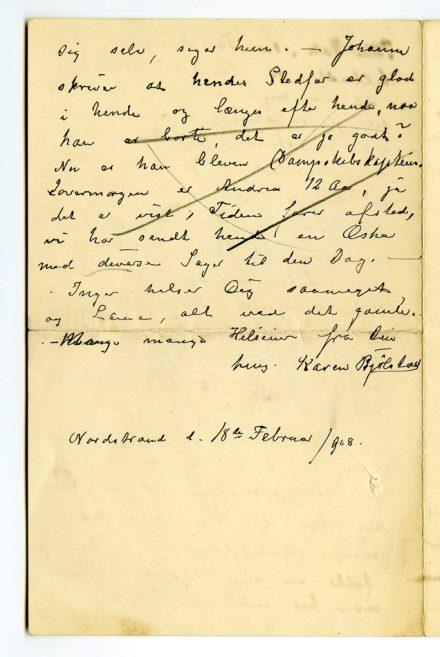 sig selv, siger hun. — Johanne
skriver at hendes Stedfar er glad
i hende og længes efter hende, naar
han er borte, det er jo godt?
Nu er han bleven Dampskibskaptein.
Iovermorgen er Andrea 12 Aar, ja
det er vist, Tiden farer afsted,
vi har sendt hende en Æske
med diverse Sager til den Dag. —
Inger hilser Dig saameget
og Laura, alt vad det gjælder.
— Mange mange Hilsener fra Din
heng. Karen Bjølstad
Nordstrand d. 18de Februar /908.